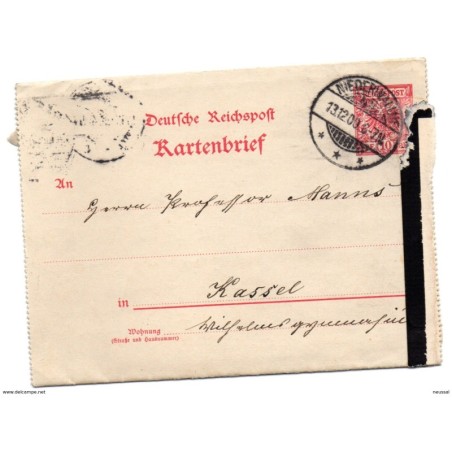 Deutsche Reichspost
Kartenbrief
13.12.0
An
Herrn Professor Manns
in Kassel
Wohnung
(Straße und Hausnummer)
Wilhelmsgymnasium
https://www.delcampe.net
neussel